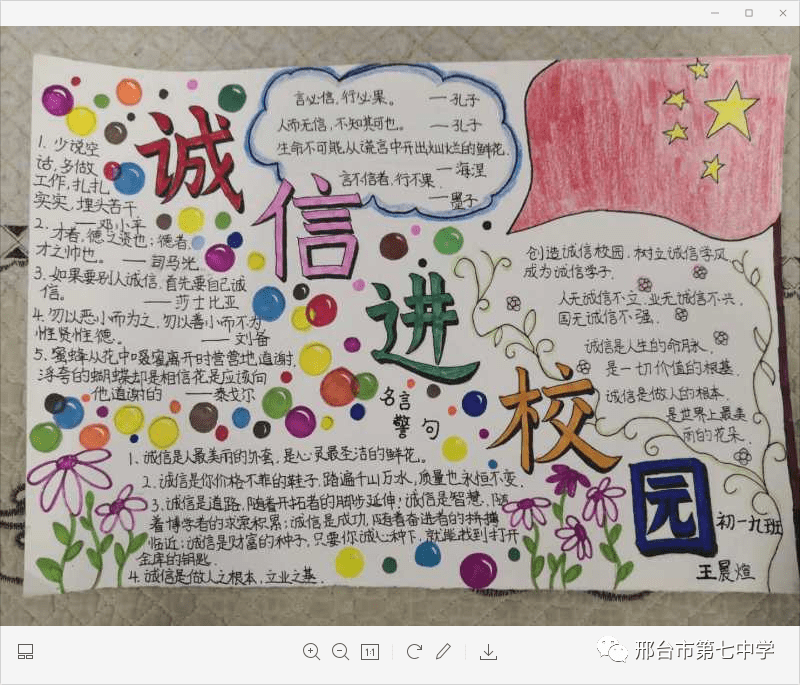 诚信进校园
言必信,行必果。 ——孔子
人而无信,不知其可也。 ——孔子
生命不可能从谎言中开出灿烂的鲜花.
——海涅
言不信者,行不果.
——墨子
1. 少说空
话,多做
工作,扎扎
实实,埋头苦干.
——邓小平
2. 才者,德之资也;德者,
才之帅也。 ——司马光
3. 如果要别人诚信,首先要自己诚
信。 ——莎士比亚
4. 勿以恶小而为之,勿以善小而不为
惟贤惟德。 ——刘备
5. 蜜蜂从花中啜蜜离开时营营地道谢.
浮夸的蝴蝶却是相信花是应该向
他道谢的 ——泰戈尔
创造诚信校园.树立诚信学风.
成为诚信学子.
人无诚信不立.业无诚信不兴.
国无诚信不强.
诚信是人生的命脉,
是一切价值的根基.
诚信是做人的根本.
是世界上最美
丽的花朵.
名言
警句
1. 诚信是人最美丽的外套,是心灵最圣洁的鲜花。
2. 诚信是你价格不菲的鞋子,踏遍千山万水,质量也永恒不变.
3. 诚信是道路,随着开拓者的脚步延伸;诚信是智慧,随
着博学者的求索积累;诚信是成功,随着奋进者的拼搏
临近;诚信是财富的种子,只要你诚心种下,就能找到打开
金库的钥匙.
4. 诚信是做人之根本,立业之基.
初一九班
王晨煊
1:1
邢台市第七中学